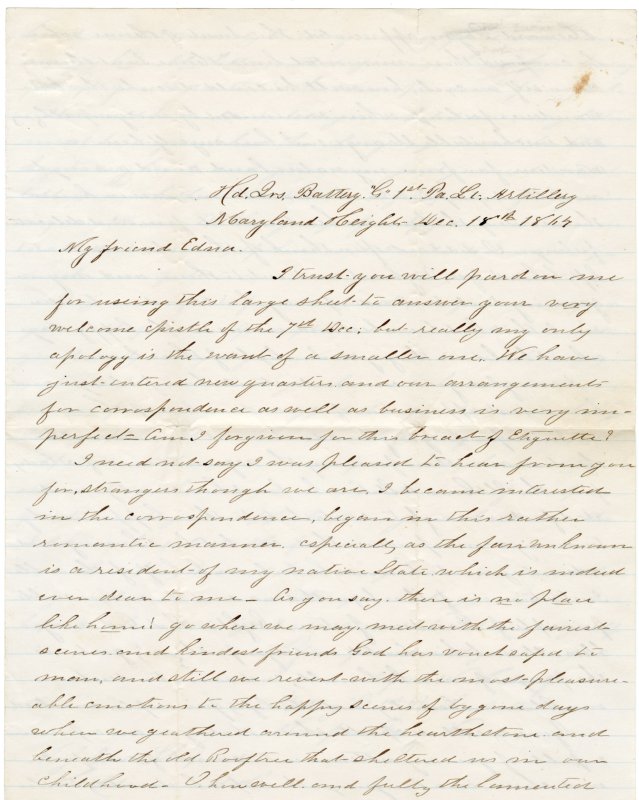 Hd. Qrs. Battery "G" 1st. Pa. Lt. Artillery
Maryland Heights Dec. 18th 1864
My friend Edna.
I trust you will pardon me
for useing this large sheet to answer your very
welcome epistle of the 7th Dec; but really my only
apology is the want of a smaller one. We have
just entered new quarters and our arrangements
for correspondence as well as business is very im-
perfect = Am I forgiven for this breach of Etiquette?
I need not say I was pleased to hear from you
for, strangers though we are, I became interested
in the correspondence, began in this rather
romantic manner. especially as the fair unknown
is a resident of my native State which is indeed
ever dear to me - As you say. there is no place
like home! go where we may. meet with the fairest
scenes and kindest friends God has vouchsafed to
man, and still we revert with the most pleasure-
able emotions to the happy scenes of by gone days
when we geathered around the hearthstone and
beneath the old Rooftree that sheltered us in our
childhood - how well and fully the lamented